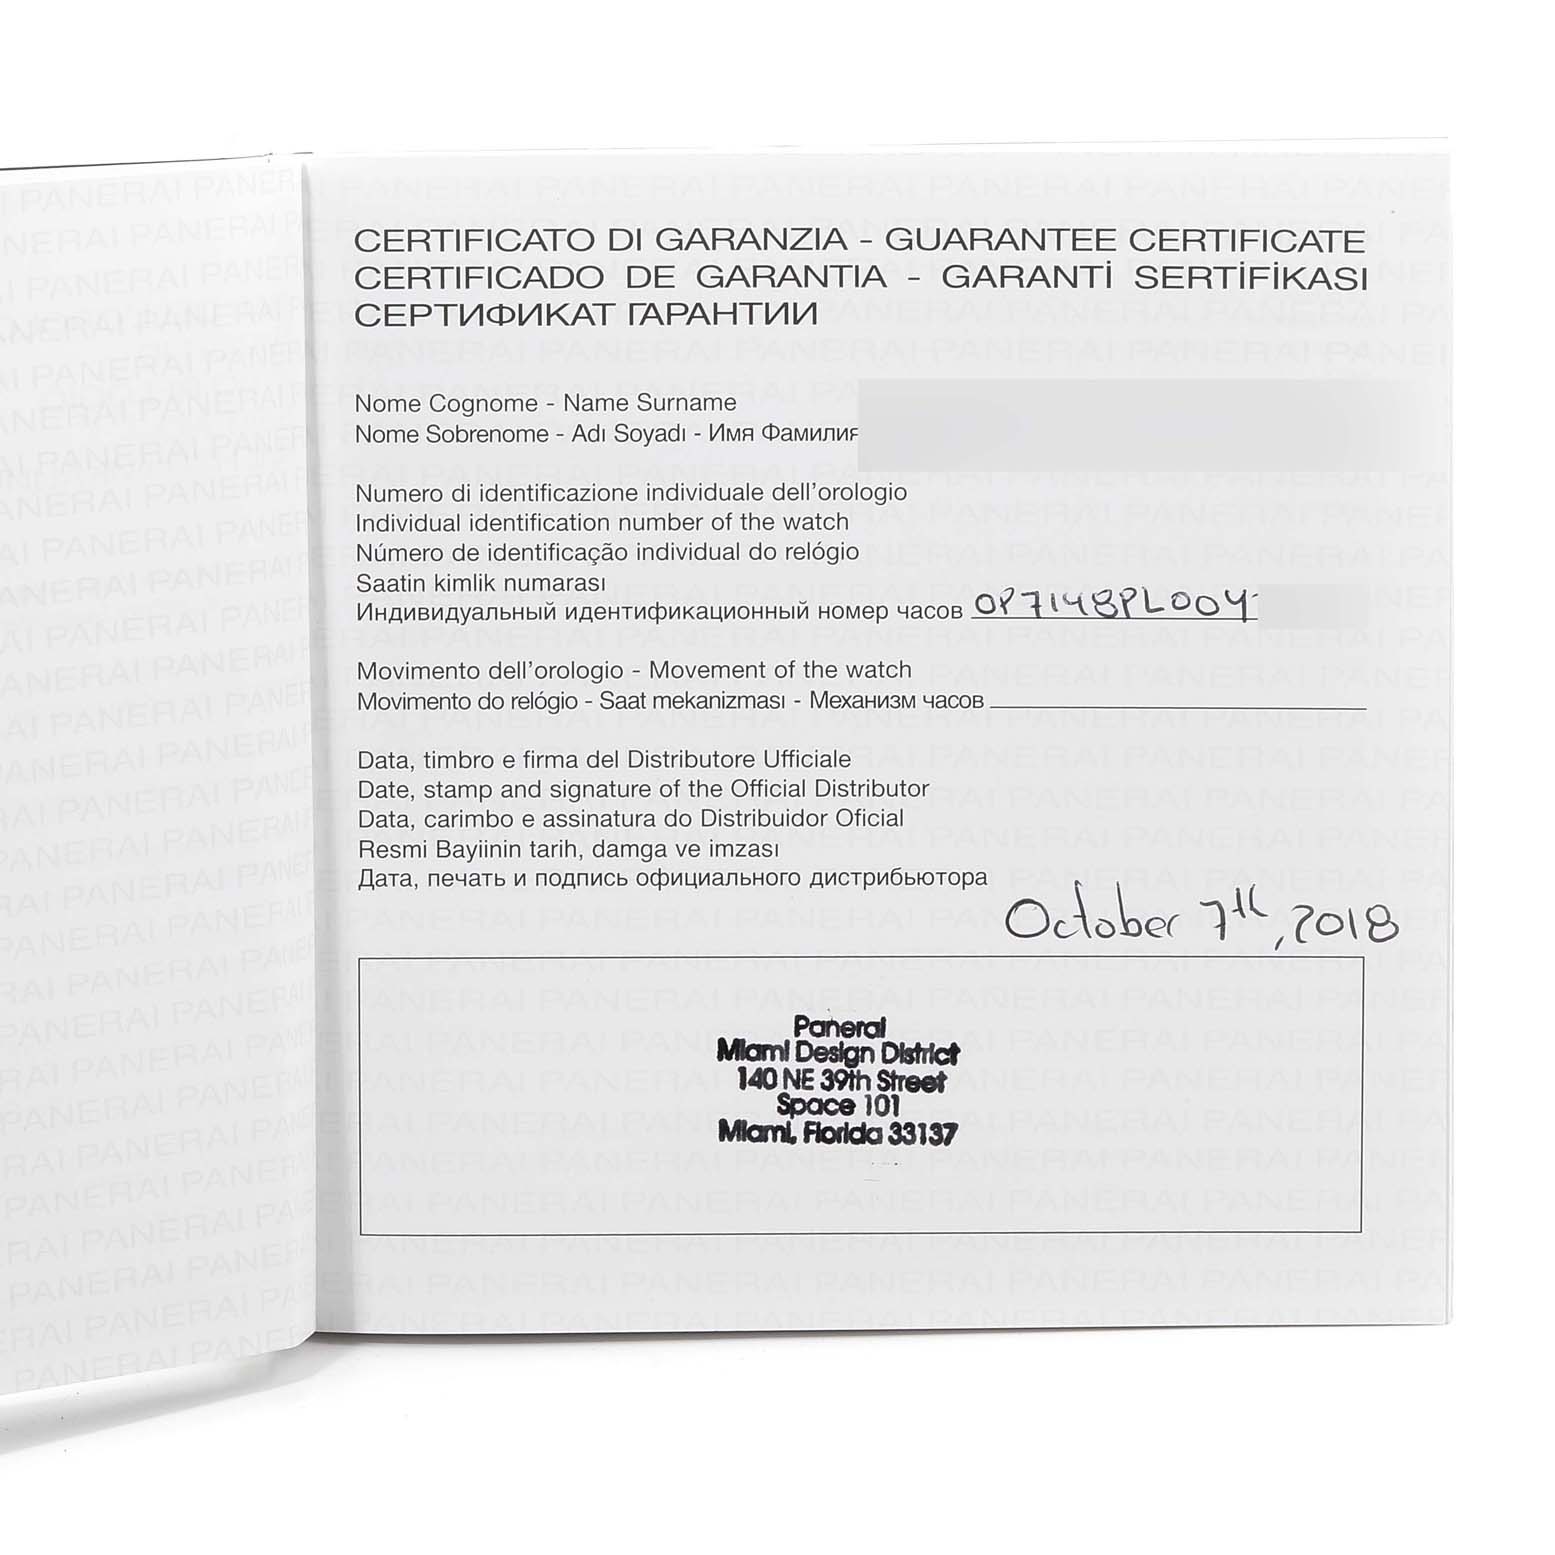 CERTIFICATO DI GARANZIA - GUARANTEE CERTIFICATE
CERTIFICADO DE GARANTIA - GARANTİ SERTİFİKASI
СЕРТИФИКАТ ГАРАНТИИ
Nome Cognome - Name Surname
Nome Sobrenome - Adı Soyadı - Имя Фамилия
Numero di identificazione individuale dell'orologio
Individual identification number of the watch
Número de identificação individual do relógio
Saatin kimlik numarası
Индивидуальный идентификационный номер часов OP7148PL004
Movimento dell'orologio - Movement of the watch
Movimento do relógio - Saat mekanizması - Механизм часов
Data, timbro e firma del Distributore Ufficiale
Date, stamp and signature of the Official Distributor
Data, carimbo e assinatura do Distribuidor Oficial
Resmi Bayiinin tarih, damga ve imzası
Дата, печать и подпись официального дистрибьютора
October 7th, 2018
Panerai
Miami Design District
140 NE 39th Street
Space 101
Miami, Florida 33137